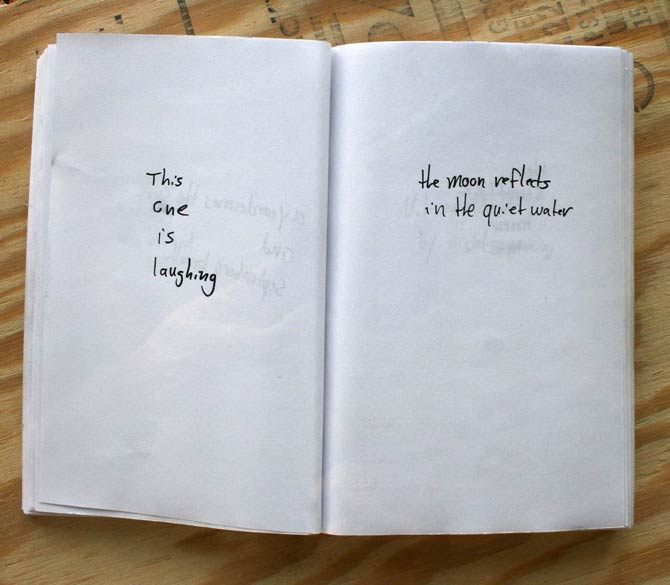 This
one
is
laughing
the moon reflects
in the quiet water